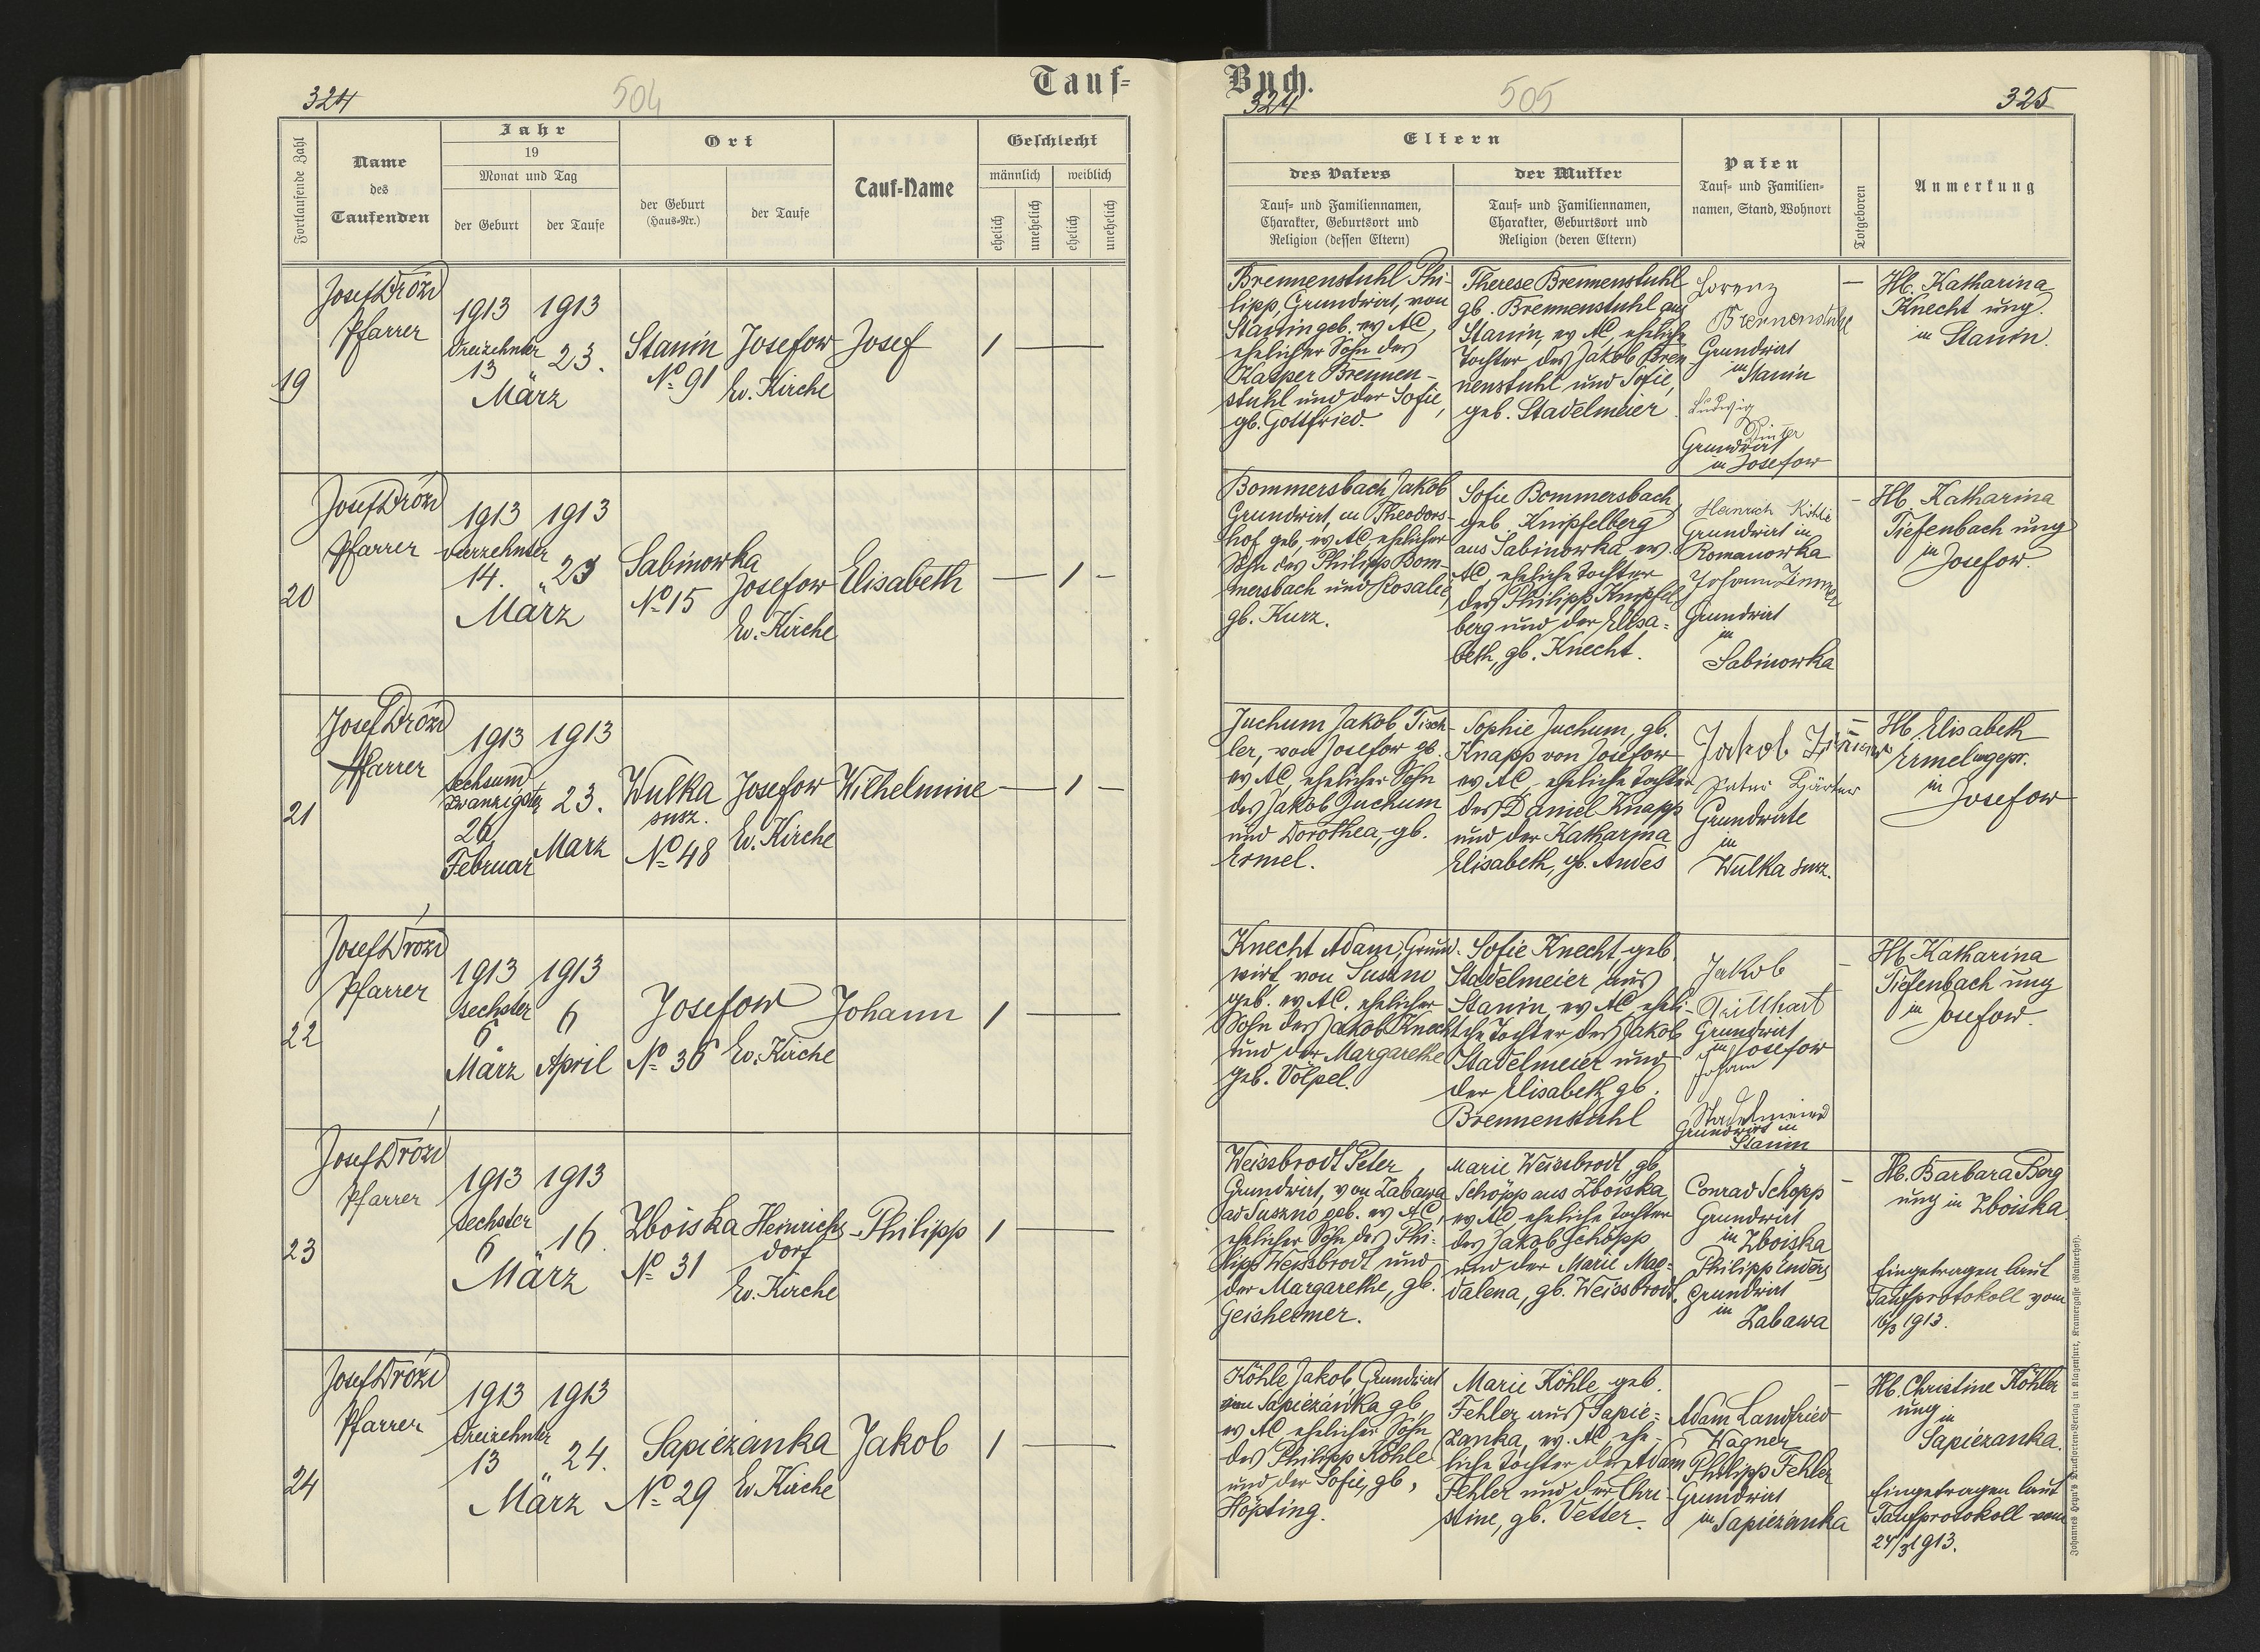 324
504
Tauf=
Fortlaufende Zahl
Name
des
Taufenden
Jahr
19
Monat und Tag
der Geburt
der Taufe
Ort
der Geburt
(Haus=Nr.)
der Taufe
Tauf=Name
Geschlecht
männlich
weiblich
ehelich
unehelich
ehelich
unehelich
19
Josef Drózd
Pfarrer
1913 1913
dreizehnter
13 " 23.
März
Stanin
No 91
Josefow
Ev. Kirche
Josef
1 —
20
Josef Drózd
Pfarrer
1913 1913
vierzehnter
14. " 23
März
Sabinowka
No 15
Josefow
Ev. Kirche
Elisabeth
— 1 -
21
Josef Drózd
Pfarrer
1913 1913
sechsund
zwanzigster
26. 23.
Februar März
Wulka
susz.
No 48
Josefow
Ev. Kirche
Wilhelmine
— 1 —
22
Josef Drózd
Pfarrer
1913 1913
sechster
6 6
März April
Josefow
No 36 Ev. Kirche
Johann
1 —
23
Josef Drózd
Pfarrer
1913 1913
sechster
6 " 16.
März
Zboiska
No 31
Heinrichs-
dorf
Ev. Kirche
Philipp
1 —
24
Josef Drózd
Pfarrer
1913 1913
dreizehnter
13 " 24.
März
Sapiezanka
No 29 Ev. Kirche
Jakob
1 —
Buch.
324
505
325
Eltern
des Vaters
Tauf= und Familiennamen,
Charakter, Geburtsort und
Religion (dessen Eltern)
der Mutter
Tauf= und Familiennamen,
Charakter, Geburtsort und
Religion (deren Eltern)
Paten
Tauf= und Familien=
namen, Stand, Wohnort
Totgeboren
Anmerkung
Brennenstuhl Phi-
lipp, Grundwirt, von
Stanin geb. ev AC,
ehelicher Sohn des
Kasper Brennen-
stuhl und der Sofie,
gb. Gottfried.
Therese Brennenstuhl
gb. Brennenstuhl aus
Stanin, ev AC, eheliche
Tochter des Jakob Bren-
nenstuhl und Sofie,
geb. Stadelmeier
Lorenz
Brennenstuhl
Grundwirt
in Stanin
Ludwig
Grundwirt
in Josefow
—
Hb. Katharina
Knecht ung.
in Stanin.
Bommersbach Jakob
Grundwirt, in Theodors-
hof geb ev AC ehelicher
Sohn des Philipp Bom-
mersbach und Rosalie,
gb. Kurz.
Sofie Bommersbach
geb. Knipfelberg
aus Sabinowka ev.
AC, eheliche Tochter
des Philipp Knipfel-
berg und der Elisa=
beth, gb. Knecht.
Heinrich Köhle
Grundwirt in
Romanowka
Johann Zimmer
Grundwirt
in
Sabinowka
—
Hb Katharina
Tiefenbach ung
in Josefow.
Juchum Jakob Tisch-
ler, von Josefow gb.
ev AC, ehelicher Sohn
des Jakob Juchum
und Dorothea, gb.
Ermel.
Sophie Juchum, gb.
Knapp von Josefow
ev AC, eheliche Tochter
des Daniel Knapp
und der Katharina
Elisabeth, gb. Andes
Jakob
Peter Gärtner
Grundwirte
in
Wulka susz.
—
Hb. Elisabeth
Ermel ungepr.
in
Josefow
Knecht Adam, Grund-
wirt, von Suszno
geb. ev AC. ehelicher
Sohn des Jakob Knecht
und der Margarethe
geb. Völpel.
Sofie Knecht geb
Stadelmeier aus
Stanin, ev AC, eheli-
che Tochter des Jakob
Stadelmeier und
der Elisabeth gb.
Brennenstuhl
Jakob
Trillhart
Grundwirt
in Josefow
Johann
Stadelmeier
Grundwirt in
Stanin
—
Hb Katharina
Tiefenbach ung
in Josefow.
Weissbrodt Peter,
Grundwirt, von Zabawa
ad Suszno geb. ev AC,
ehelicher Sohn des Phi-
lipp Weissbrodt und
der Margarethe, gb.
Geisheimer.
Marie Weissbrodt gb.
Schöpp aus Zboiska,
ev AC eheliche Tochter
des Jakob Schöpp
und der Marie Mag=
dalena, gb. Weissbrodt.
Conrad Schöpp
Grundwirt
in Zboiska
Philipp Enders
Grundwirt
in
Zabawa
—
Hb. Barbara Berg
ung in Zboiska.
Eingetragen laut
Taufprotokoll vom
16/3 1913.
Köhle Jakob Grundwirt
von Sapiezanka gb,
ev AC ehelicher Sohn
des Philipp Köhle
und der Sofie, gb,
Höpting.
Marie Köhle geb.
Fehler aus Sapie=
zanka, ev. AC ehe-
liche Tochter des Adam
Fehler und der Chri-
stine, gb. Vetter.
Adam Landfried
Wagner
Philipp Fehler
Grundwirt
in Sapiezanka
—
Hb. Christine Köhler
ung in
Sapiezanka.
Eingetragen laut
Taufprotokoll vom
24/3 1913.